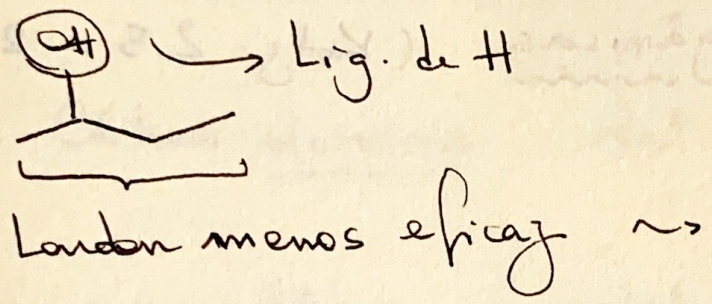 OH → Lig. de H
London menos eficaz ~>